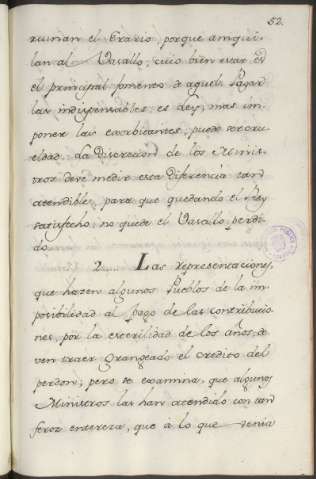 52.
ruinan el Erario, porque aniqui-
lan al Vasallo; cuio bien estar es
el principal fomento de aquel: Pagar
las indispensables es ley; mas im-
poner las exorbitantes, puede ser cru-
eldad. La Discrecion de los Minis-
tros deve medir esta Diferencia tan
atendible, para que quedando el Rey
satisfecho, no quede el Vasallo perdi-
do.
2. Las representaciones,
que hazen algunos Pueblos de la im-
posibilidad al pago de las contribucio-
nes, por la esterilidad de los años, de
ven traer grangeado el credito del
perdon; pero se examina, que algunos
Ministros las han atendido con tan
feroz entereza, que a lo que venia